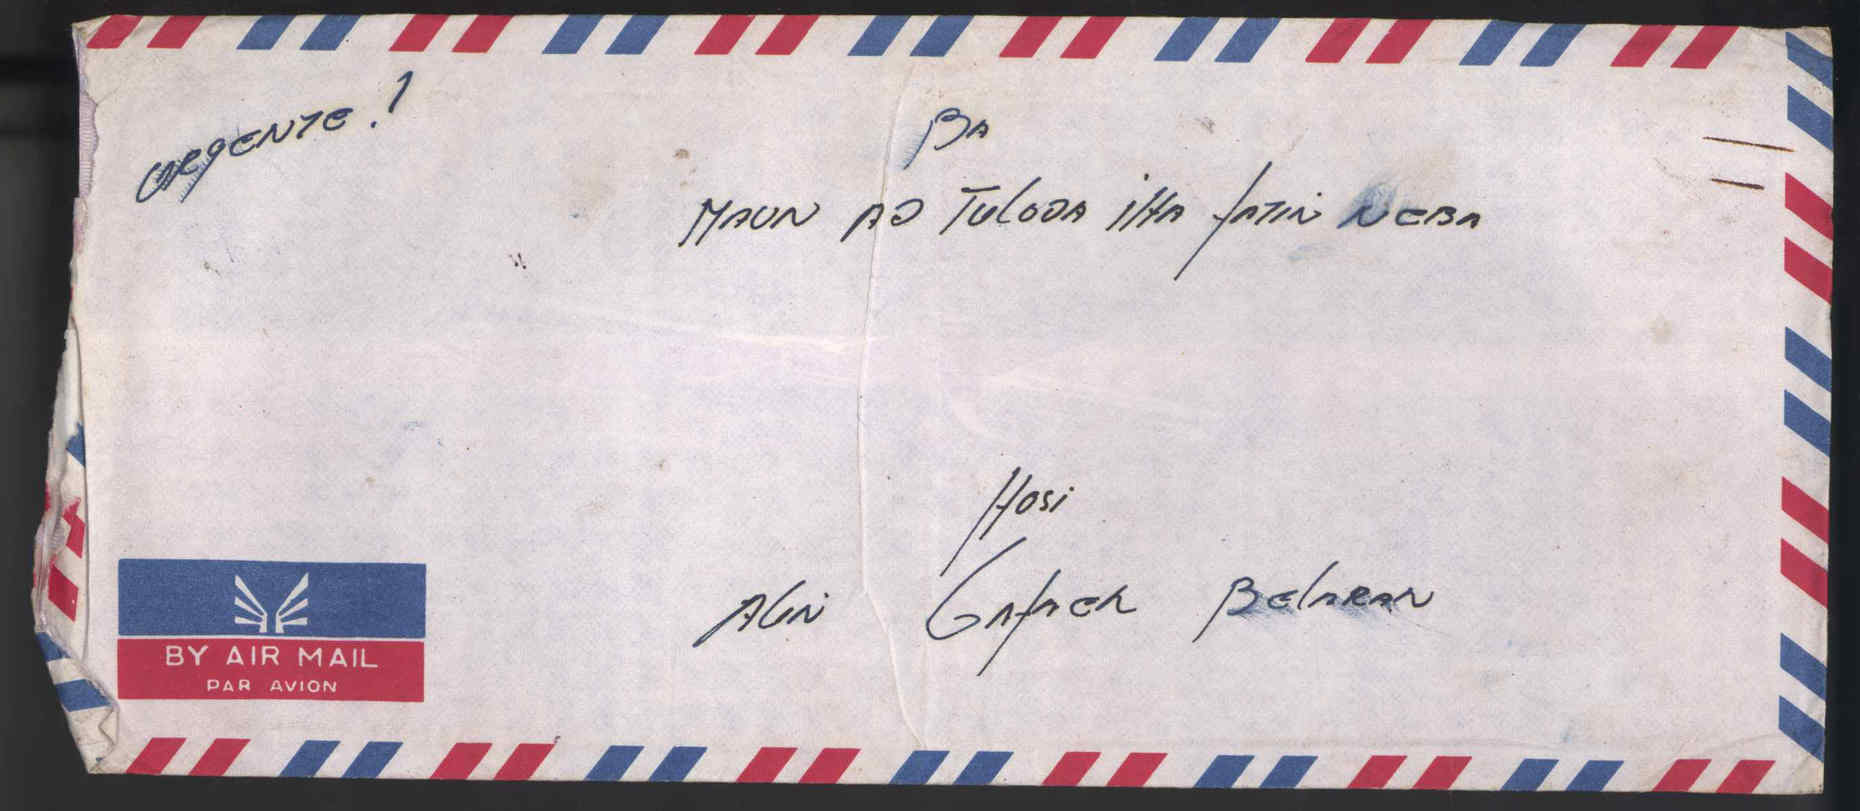 Urgente!
Ba
Maun AJ Tuloda iha fatin neba
Hosi
Alin Gafaek Belaran
BY AIR MAIL
PAR AVION